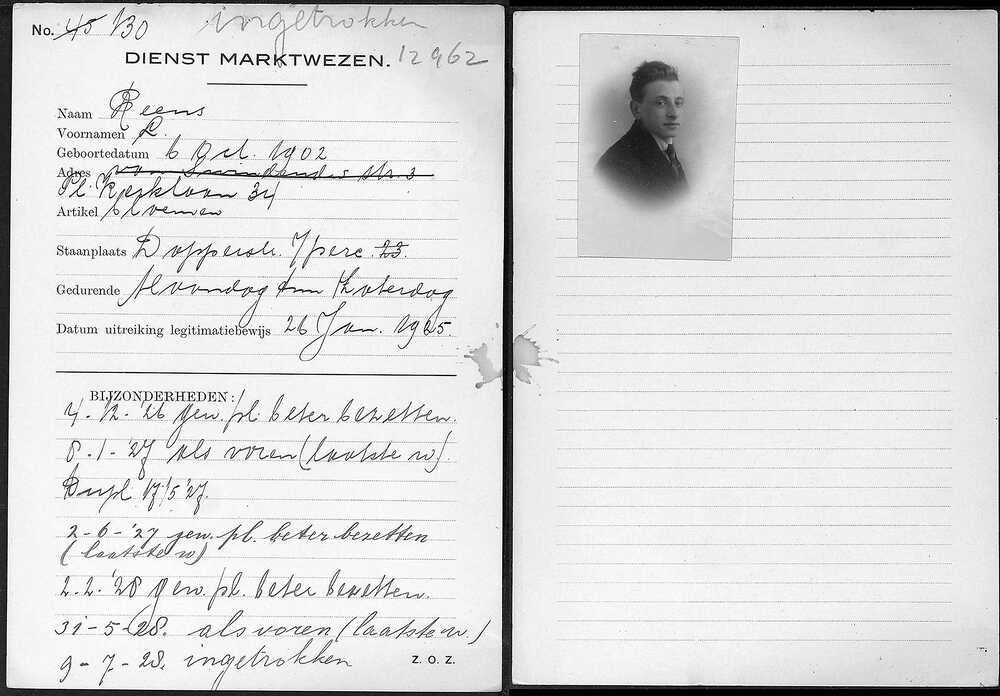 No. 45 130 ingetrokken
DIENST MARKTWEZEN. 12962
Naam Reens
Voornamen L.
Geboortedatum 6 Oct. 1902
Adres str. 3
Pl. Kerklaan 34
Artikel bloemen
Staanplaats Dapperstr. 7 perc. 23.
Gedurende Maandag t/m Zaterdag
Datum uitreiking legitimatiebewijs 26 Jan. 1925.
BIJZONDERHEDEN:
4-12-'26 gew. pl. beter bezetten.
8-1-'27 als voren (laatste w).
Dupl 17/5 '27.
2-6-'27 gew. pl. beter bezetten
(laatste w)
2-2-'28 gew. pl. beter bezetten.
31-5-28. als voren (laatste w.)
9-7-28. ingetrokken
Z. O. Z.